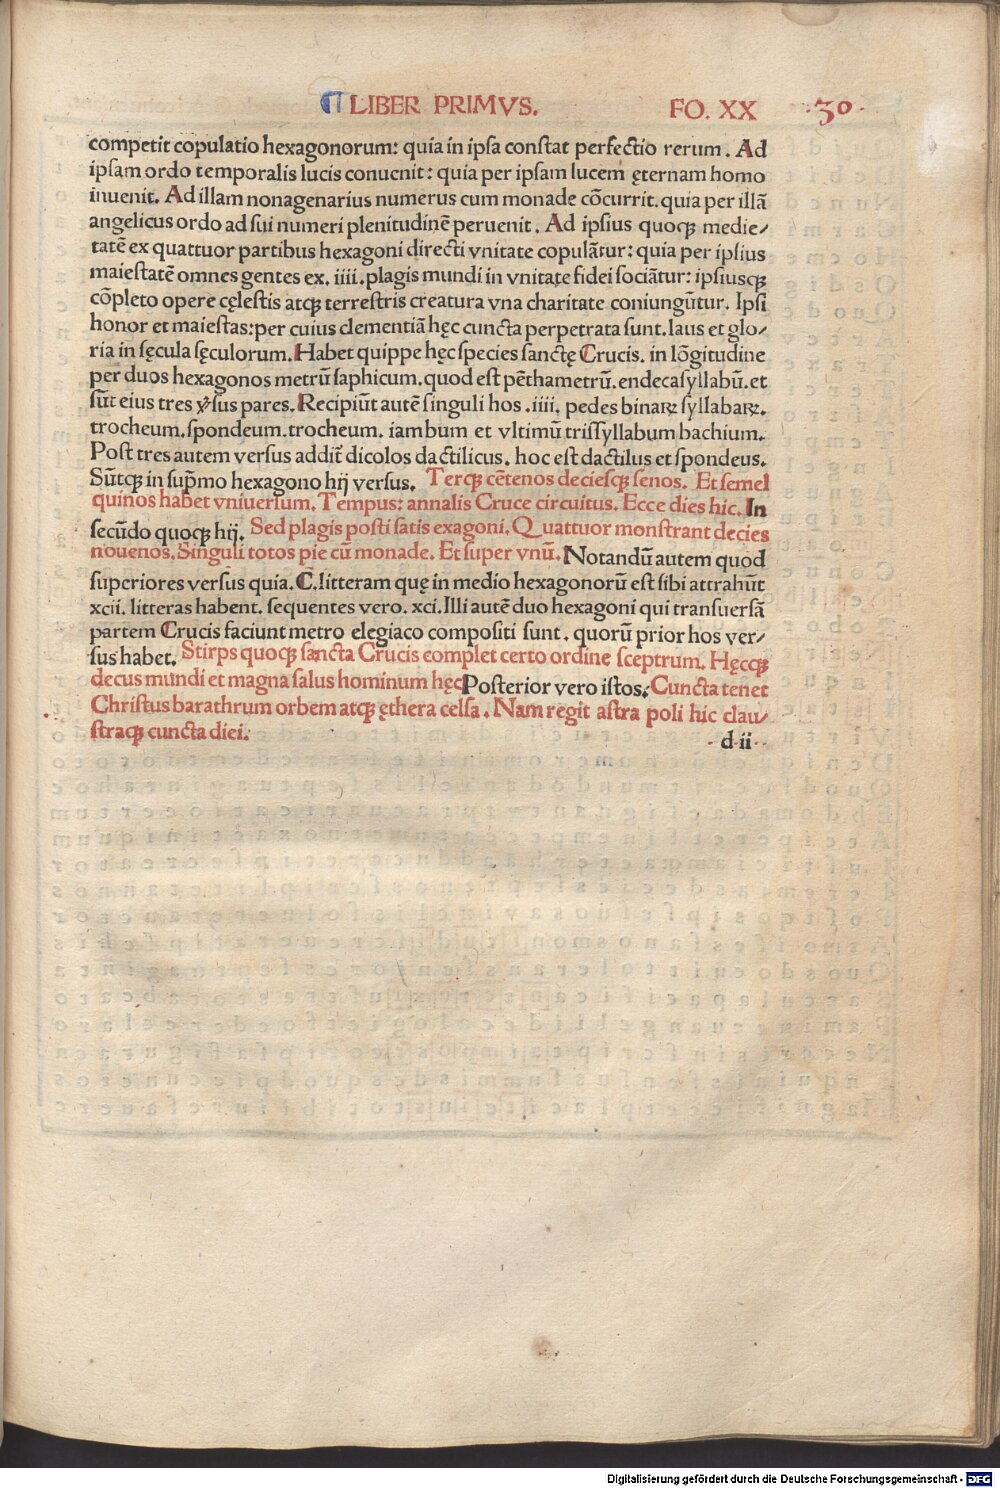 ¶ LIBER PRIMVS. FO. XX ·30·
competit copulatio hexagonorum: quia in ipsa constat perfectio rerum. Ad
ipsam ordo temporalis lucis conuenit: quia per ipsam lucem ęternam homo
inuenit. Ad illam nonagenarius numerus cum monade cōcurrit. quia per illā
angelicus ordo ad sui numeri plenitudinē peruenit. Ad ipsius quoqꝫ medie/
tatē ex quattuor partibus hexagoni directi vnitate copulātur: quia per ipsius
maiestatē omnes gentes ex. iiii. plagis mundi in vnitate fidei sociātur: ipsiusqꝫ
cōpleto opere cęlestis atqꝫ terrestris creatura vna charitate coniungūtur. Ipsi
honor et maiestas: per cuius clementiā hęc cuncta perpetrata sunt. laus et glo/
ria in sęcula sęculorum. Habet quippe hęc species sanctę Crucis. in lōgitudine
per duos hexagonos metrū saphicum. quod est pēthametrū. endecasyllabū. et
sūt eius tres ꝟsus pares. Recipiūt autē singuli hos .iiii. pedes binaꝝ syllabaꝝ.
trocheum. spondeum. trocheum. iambum et vltimū trissyllabum bachium.
Post tres autem versus addit̄ dicolos dactilicus. hoc est dactilus et spondeus.
Sūtqꝫ in sup̄mo hexagono hij versus. Terqꝫ cētenos deciesqꝫ senos. Et semel
quinos habet vniuersum. Tempus: annalis Cruce circuitus. Ecce dies hic. In
secūdo quoqꝫ hij. Sed plagis posti satis exagoni. Quattuor monstrant decies
nouenos. Singuli totos pie cū monade. Et super vnū. Notandū autem quod
superiores versus quia. C. litteram quę in medio hexagonorū est sibi attrahūt
xcii. litteras habent. sequentes vero. xci. Illi autē duo hexagoni qui transuersā
partem Crucis faciunt metro elegiaco compositi sunt. quorū prior hos ver/
sus habet. Stirps quoqꝫ sancta Crucis complet certo ordine sceptrum. Hęcqꝫ
decus mundi et magna salus hominum hęc Posterior vero istos. Cuncta tenet
Christus barathrum orbem atqꝫ ęthera celsa. Nam regit astra poli hic clau/
straqꝫ cuncta diei.
d ii
Digitalisierung gefördert durch die Deutsche Forschungsgemeinschaft - DFG